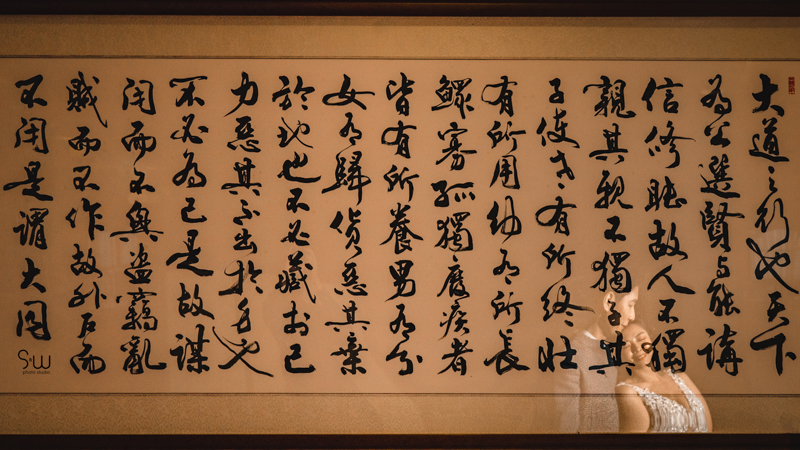 大道之行也天下
為公選賢与能講
信修睦故人不獨
親其親不獨子其
子使老有所終壯
有所用幼有所長
鰥寡孤獨廢疾者
皆有所養男有分
女有歸貨惡其棄
於地也不必藏於己
力惡其不出於身也
不必為己是故謀
閉而不興盜竊亂
賊而不作故外戶而
不閉是謂大同
S&W
photo studio